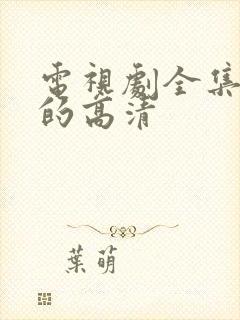 電視劇全集
的高清
葉萌